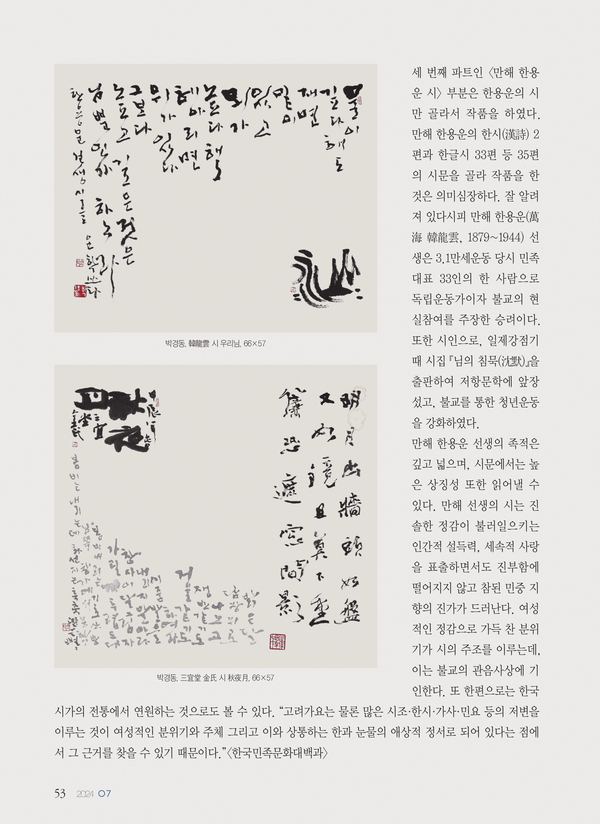 물이
깊다 해도
재면
밑이
있고
뫼가
높다 해
헤아리면
위가 있다
그보다
높고 깊은 것은
님뿐인가 하노라
박경동, 韓龍雲 시 우리님, 66×57
明月出牆頭如盤
又如鏡且莫下重
簾恐遮窓間影
秋夜
月
三宜
堂
박경동, 三宜堂 金氏 시 秋夜月, 66×57
세 번째 파트인 〈만해 한용
운 시〉 부분은 한용운의 시
만 골라서 작품을 하였다.
만해 한용운의 한시(漢詩) 2
편과 한글시 33편 등 35편
의 시문을 골라 작품을 한
것은 의미심장하다. 잘 알려
져 있다시피 만해 한용운(萬
海 韓龍雲, 1879~1944) 선
생은 3.1만세운동 당시 민족
대표 33인의 한 사람으로
독립운동가이자 불교의 현
실참여를 주장한 승려이다.
또한 시인으로, 일제강점기
때 시집 『님의 침묵(沈默)』을
출판하여 저항문학에 앞장
섰고, 불교를 통한 청년운동
을 강화하였다.
만해 한용운 선생의 족적은
깊고 넓으며, 시문에서는 높
은 상징성 또한 읽어낼 수
있다. 만해 선생의 시는 진
솔한 정감이 불러일으키는
인간적 설득력, 세속적 사랑
을 표출하면서도 진부함에
떨어지지 않고 참된 민중 지
향의 진가가 드러난다. 여성
적인 정감으로 가득 찬 분위
기가 시의 주조를 이루는데,
이는 불교의 관음사상에 기
인한다. 또 한편으로는 한국
시가의 전통에서 연원하는 것으로도 볼 수 있다. “고려가요는 물론 많은 시조·한시·가사·민요 등의 저변을
이루는 것이 여성적인 분위기와 주체 그리고 이와 상통하는 한과 눈물의 애상적 정서로 되어 있다는 점에
서 그 근거를 찾을 수 있기 때문이다.”〈한국민족문화대백과〉
53 2024 07